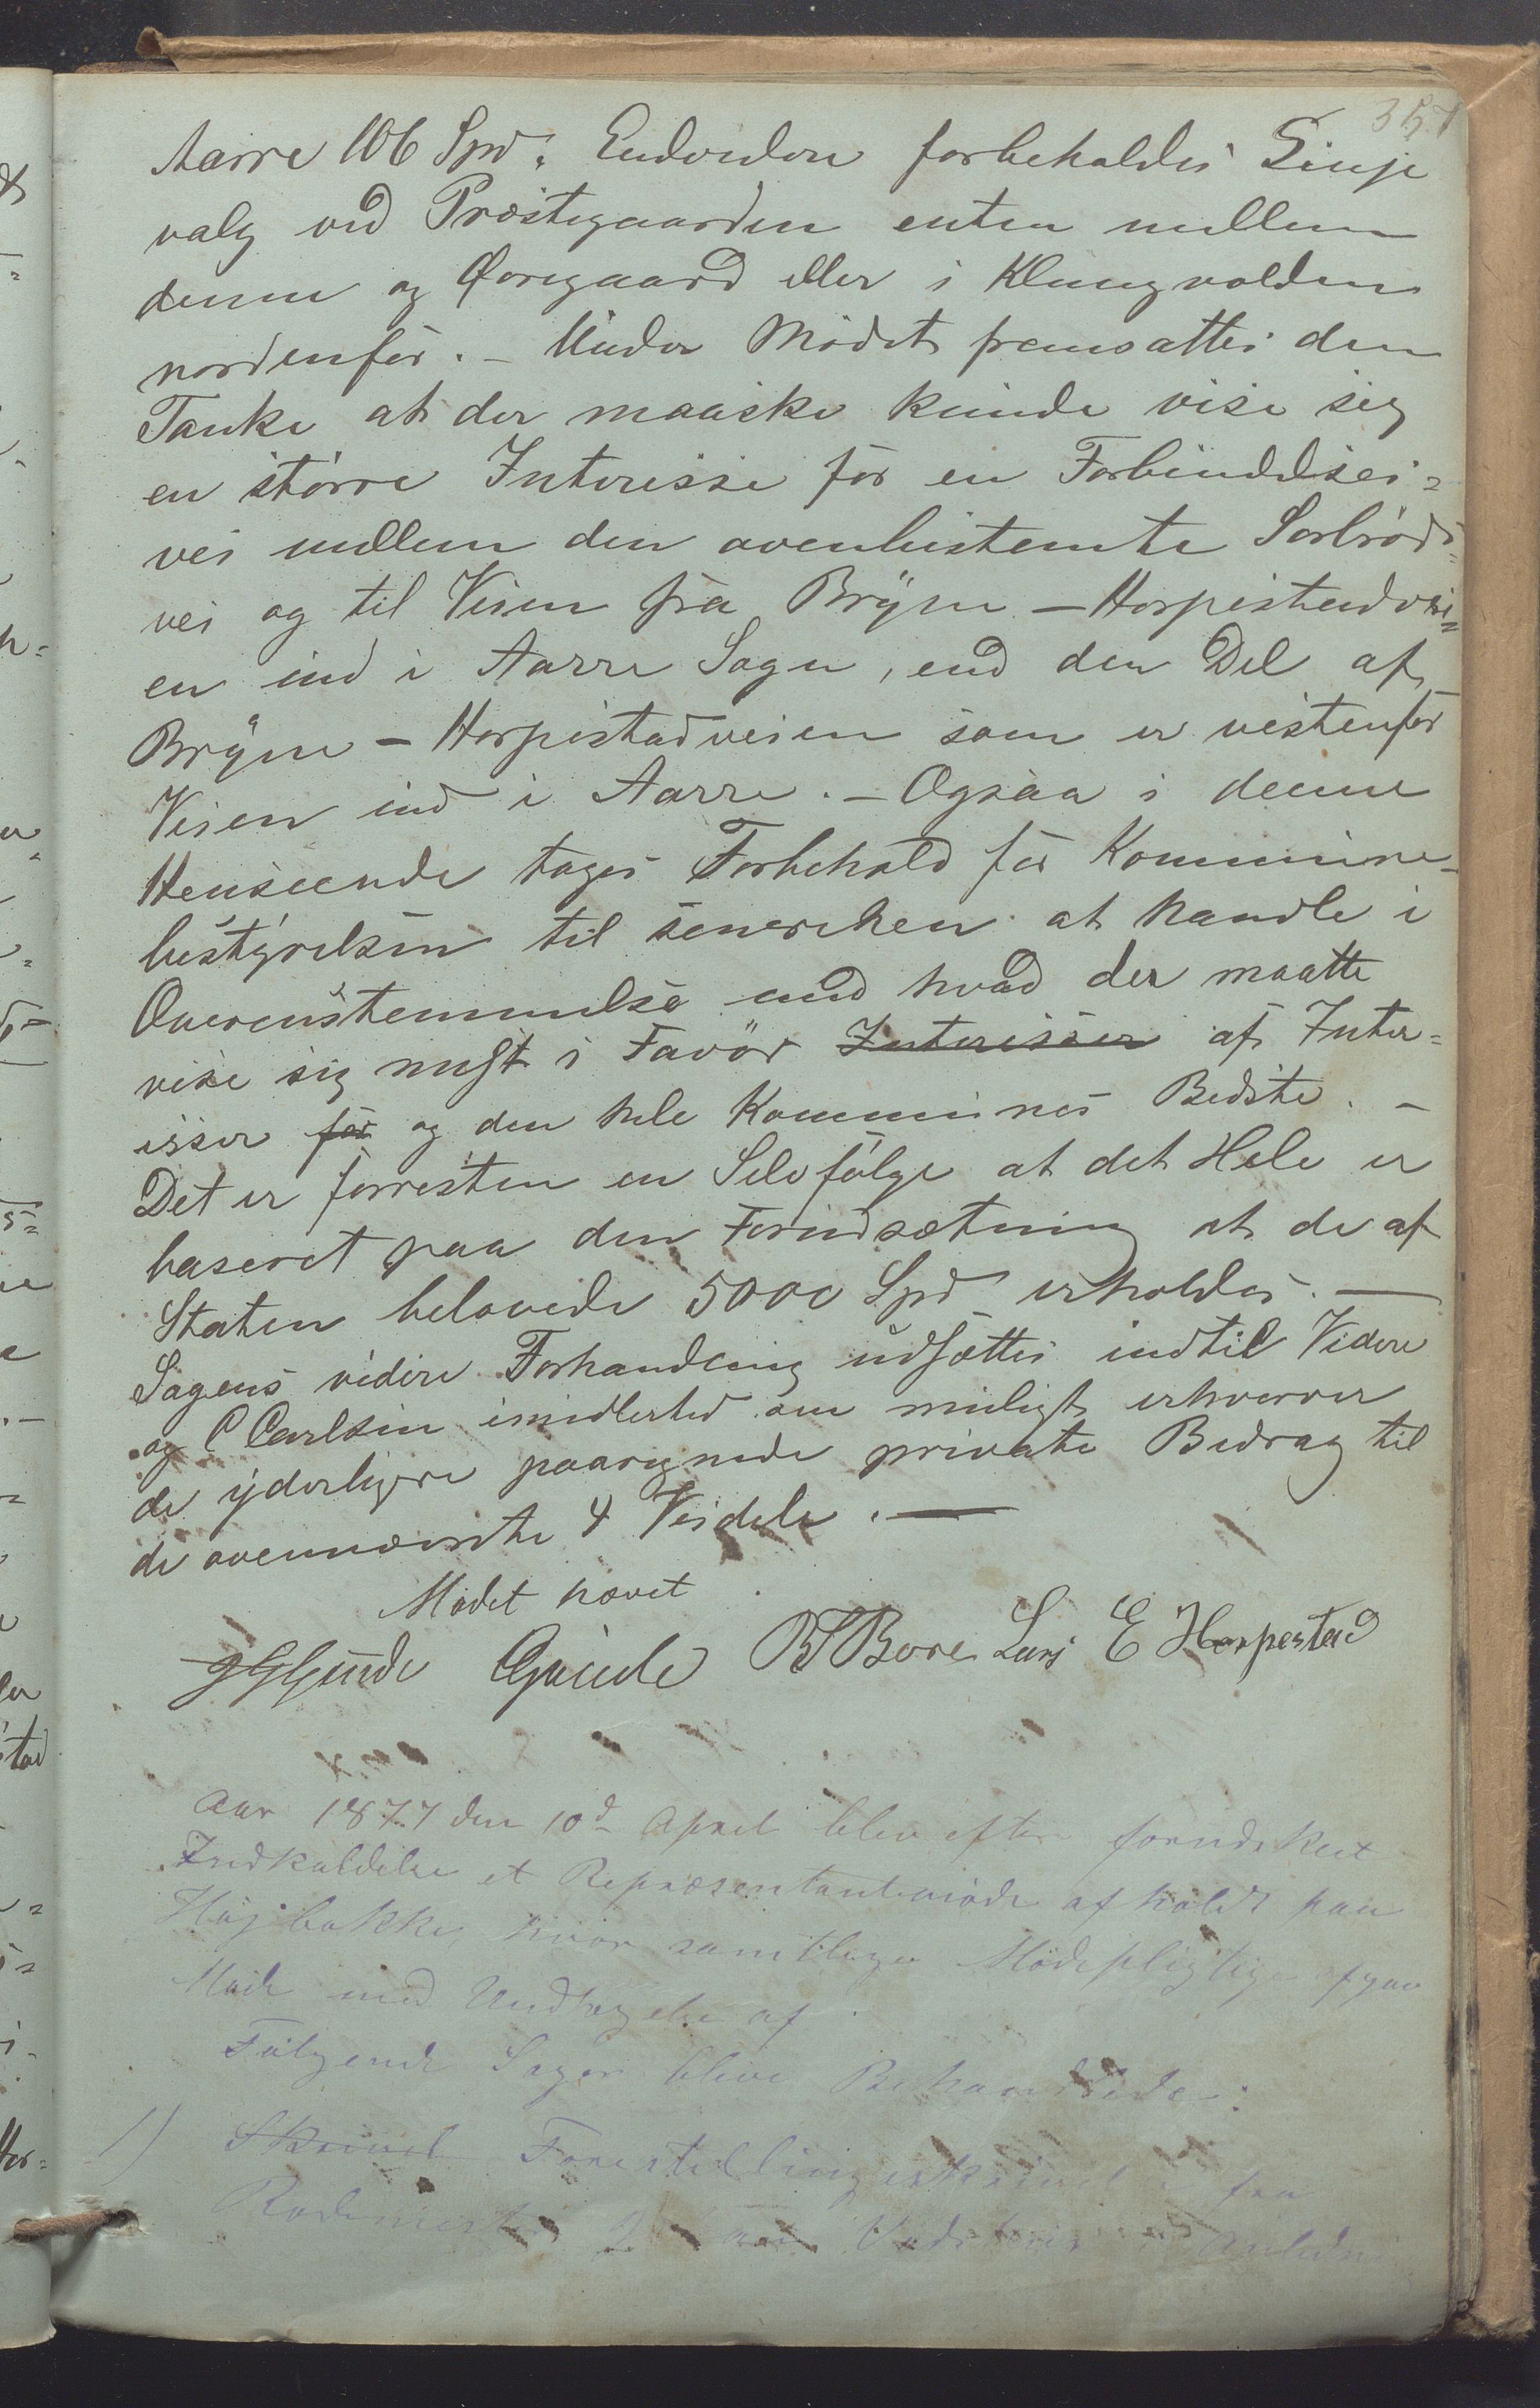 357
Aarre 106 Spd. Endvidere forbeholdes Linje
valg ved Præstegaarden enten mellem
denne og Øvregaard eller i Klungvolden
nordenfor. – Under Mødet fremsattes den
Tanke at der maaske kunde vise sig
en større Interesse for en Forbindelses-
vei mellem den ovenbestemte Sorbrøds-
vei og til Veien fra Bryne – Horpestadvei-
en ind i Aarre Sogn, end den Del af
Bryne – Horpestadveien som er vestenfor
Veien ind i Aarre. – Ogsaa i denne
Henseende tages Forbehold for Kommune-
bestyrelsen til senerehen at handle i
Overenstemmelse med hvad der maatte
vise sig mest i Favör Interesser af Inter-
esser for og den hele Kommunes Bedste. –
Det er forresten en Selvfølge at det Hele er
baseret paa den Forudsætning at de af
Staten belovede 5000 Spd erholdes. –
Sagens videre Forhandling udsættes indtil Videre
og C Carlsen imidlertid om muligt erhverver
de yderligere paaregnede private Bedrag til
de ovennævnte 4 Veidele. –
Mødet hævet
Gunde BSBore Lars E Horpestad
Aar 1877 den 10d April blev efter forudskeet
Indkaldelse et Repræsentantmøde afholdt paa
Højbakke, hvor samtlige Mødepligtige gav
Møde med Undtagelse af
Følgende Sager bleve Behandlede:
1) Skrivel Forestillingsskrivelse fra
Rodemester i Anledn